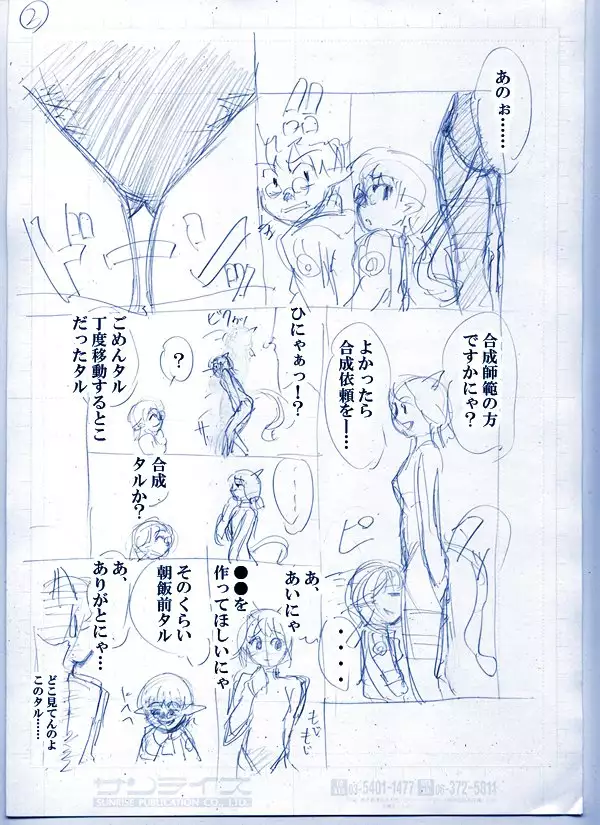 2
あのぉ……
ドーン
合成師範の方
ですかにゃ？
よかったら
合成依頼を―…
ピ
・・・・
ひにゃぁっ！？
ビクゥッ
？
ごめんタル
丁度移動するとこ
だったタル
……
合成
タルか？
あ、
あいにゃ
●●を
作ってほしいにゃ
もじ
もじ
そのくらい
朝飯前タル
あ、
ありがとにゃ…
どこ見てんのよ
このタル……
サンライズ
SUNRISE PUBLICATION CO., LTD.
03-5401-1477
06-372-5811